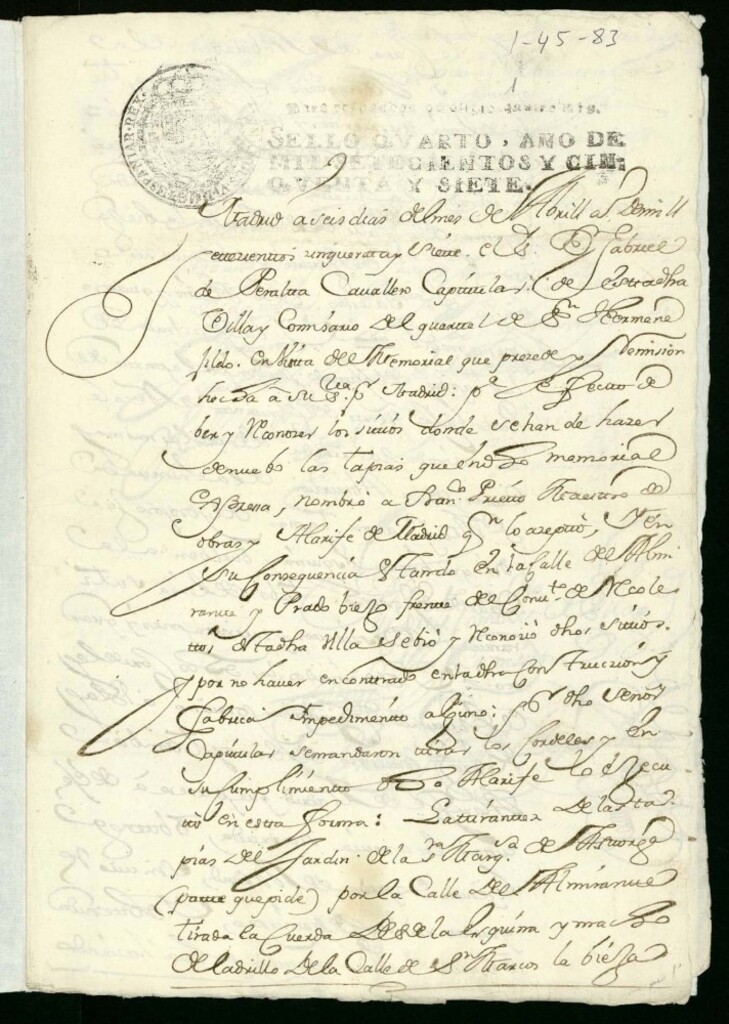 1-45-83
1
SELLO QVARTO, AÑO DE
MIL SETECIENTOS Y CIN=
QVENTA Y SIETE.
HISPANIAR·REX
Madrid a seis dias del mes de Abrill as. de mill
setezientos zinquenta y Siete. el S. Dn Gabriel
de Peralta Cavallero Capitular de esta dha
Villa y Comisario del quartel de Sn Hermene
gildo. en vista del Memorial que prezede y Remision
hecha a su por Madrid: pa efecto de
ber y Reconozer los sitios donde se han de hazer
de nuebo las tapias que en dho memorial
expresa, nombró a Franco Prieto Maestro de
obras y Alarife de Madrid qn lo azeptó, Y en
su Consequencia estando en la Calle del Almi
rante y Prado biejo frente del Convto de Recole
tos de esta dha Villa se bió y Reconozió dhos sitios.
y por no haver encontrado en la dha Construczion y
fabrica impedimento alguno: por dho Señor
Capitular se mandaron tirar los Cordeles y en
su Cumplimiento dho Alarife lo executó
en esta forma: La tirantez de las ta
pias del Jardin de la Sra Marqsa de Astorga
(parte que pide) por la Calle del Almirante
tirada la Cuerda desde la esquina y macho
de ladrillo de la Calle de Sn Marcos la bieja